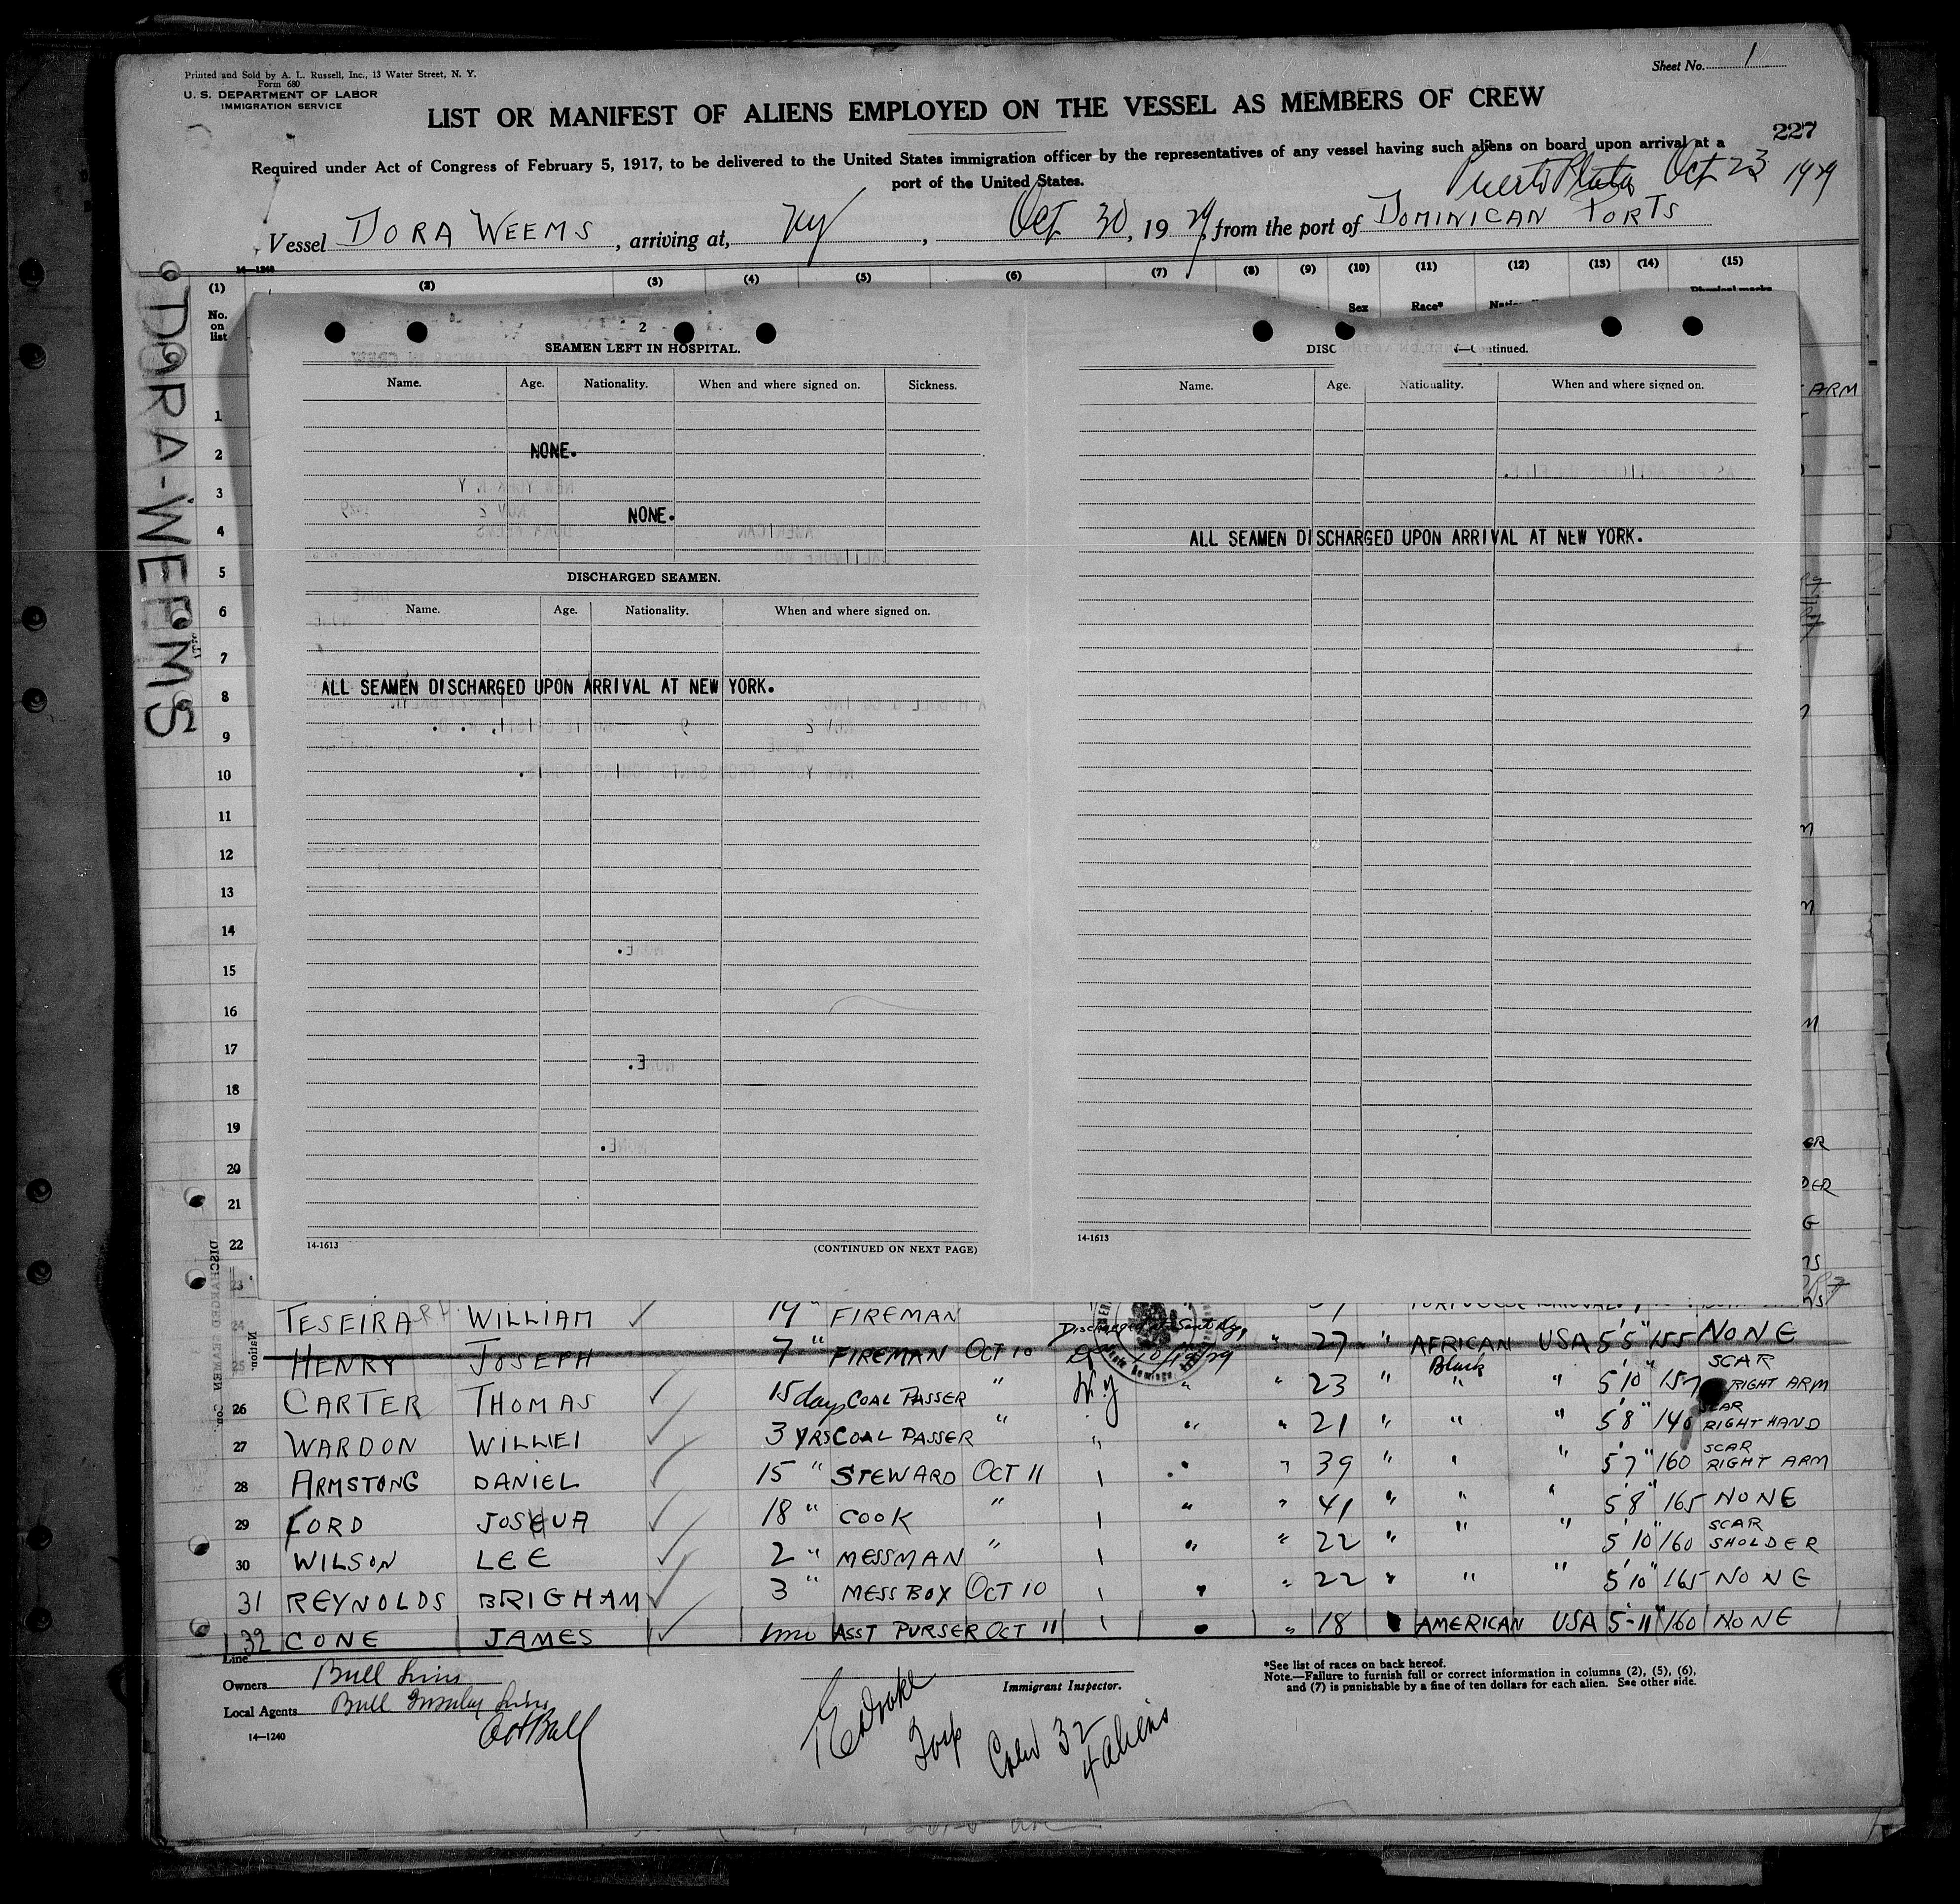 Printed and Sold by A. L. Russell, Inc., 13 Water Street, N. Y.
Form 680
U. S. DEPARTMENT OF LABOR
IMMIGRATION SERVICE
Sheet No. 1
LIST OR MANIFEST OF ALIENS EMPLOYED ON THE VESSEL AS MEMBERS OF CREW
227
Required under Act of Congress of February 5, 1917, to be delivered to the United States immigration officer by the representatives of any vessel having such aliens on board upon arrival at a
port of the United States.
Puerto Plata Oct 23 1929
Vessel DORA WEEMS, arriving at, NY, Oct 30, 1929, from the port of DOMINICAN PORTS
14-1240
(1) (2) (3) (4) (5) (6) (7) (8) (9) (10) (11) (12) (13) (14) (15)
No. on list
Sex Race*
DORA-WEEMS
2
SEAMEN LEFT IN HOSPITAL.
Name. Age. Nationality. When and where signed on. Sickness.
NONE.
NONE.
DISCHARGED SEAMEN.
Name. Age. Nationality. When and where signed on.
ALL SEAMEN DISCHARGED UPON ARRIVAL AT NEW YORK.
14-1613
(CONTINUED ON NEXT PAGE)
Name. Age. Nationality. When and where signed on.
ALL SEAMEN DISCHARGED UPON ARRIVAL AT NEW YORK.
14-1613
1
2
3
4
5
6
7
8
9
10
11
12
13
14
15
16
17
18
19
20
21
22
23
24 TESEIRA WILLIAM 19 " FIREMAN
Discharged
25 HENRY JOSEPH 7 " FIREMAN OCT 10 " 27 " AFRICAN USA 5'5" 155 NONE
Black
26 CARTER THOMAS 15 days COAL PASSER " NY " " 23 " " " 5'10" 157 SCAR RIGHT ARM
27 WARDON WILLIEI 3 YRS COAL PASSER " " " " 21 " " " 5'8" 140 SCAR RIGHT HAND
28 ARMSTONG DANIEL 15 " STEWARD OCT 11 " " " 39 " " " 5'7" 160 SCAR RIGHT ARM
29 FORD JOSHUA 18 " COOK " " " " 41 " " " 5'8" 165 NONE
30 WILSON LEE 2 " MESSMAN " " " " 22 " " " 5'10" 160 SCAR SHOLDER
31 REYNOLDS BRIGHAM 3 " MESS BOX OCT 10 " " " 22 " " " 5'10" 165 NONE
32 CONE JAMES 1mo ASST PURSER OCT 11 " " " 18 " AMERICAN USA 5-11" 160 NONE
Line
Owners Bull Lines
Local Agents Bull Insular Line
14-1240
Immigrant Inspector.
Insp
Crew 32
4 aliens
*See list of races on back hereof.
Note.—Failure to furnish full or correct information in columns (2), (5), (6),
and (7) is punishable by a fine of ten dollars for each alien. See other side.